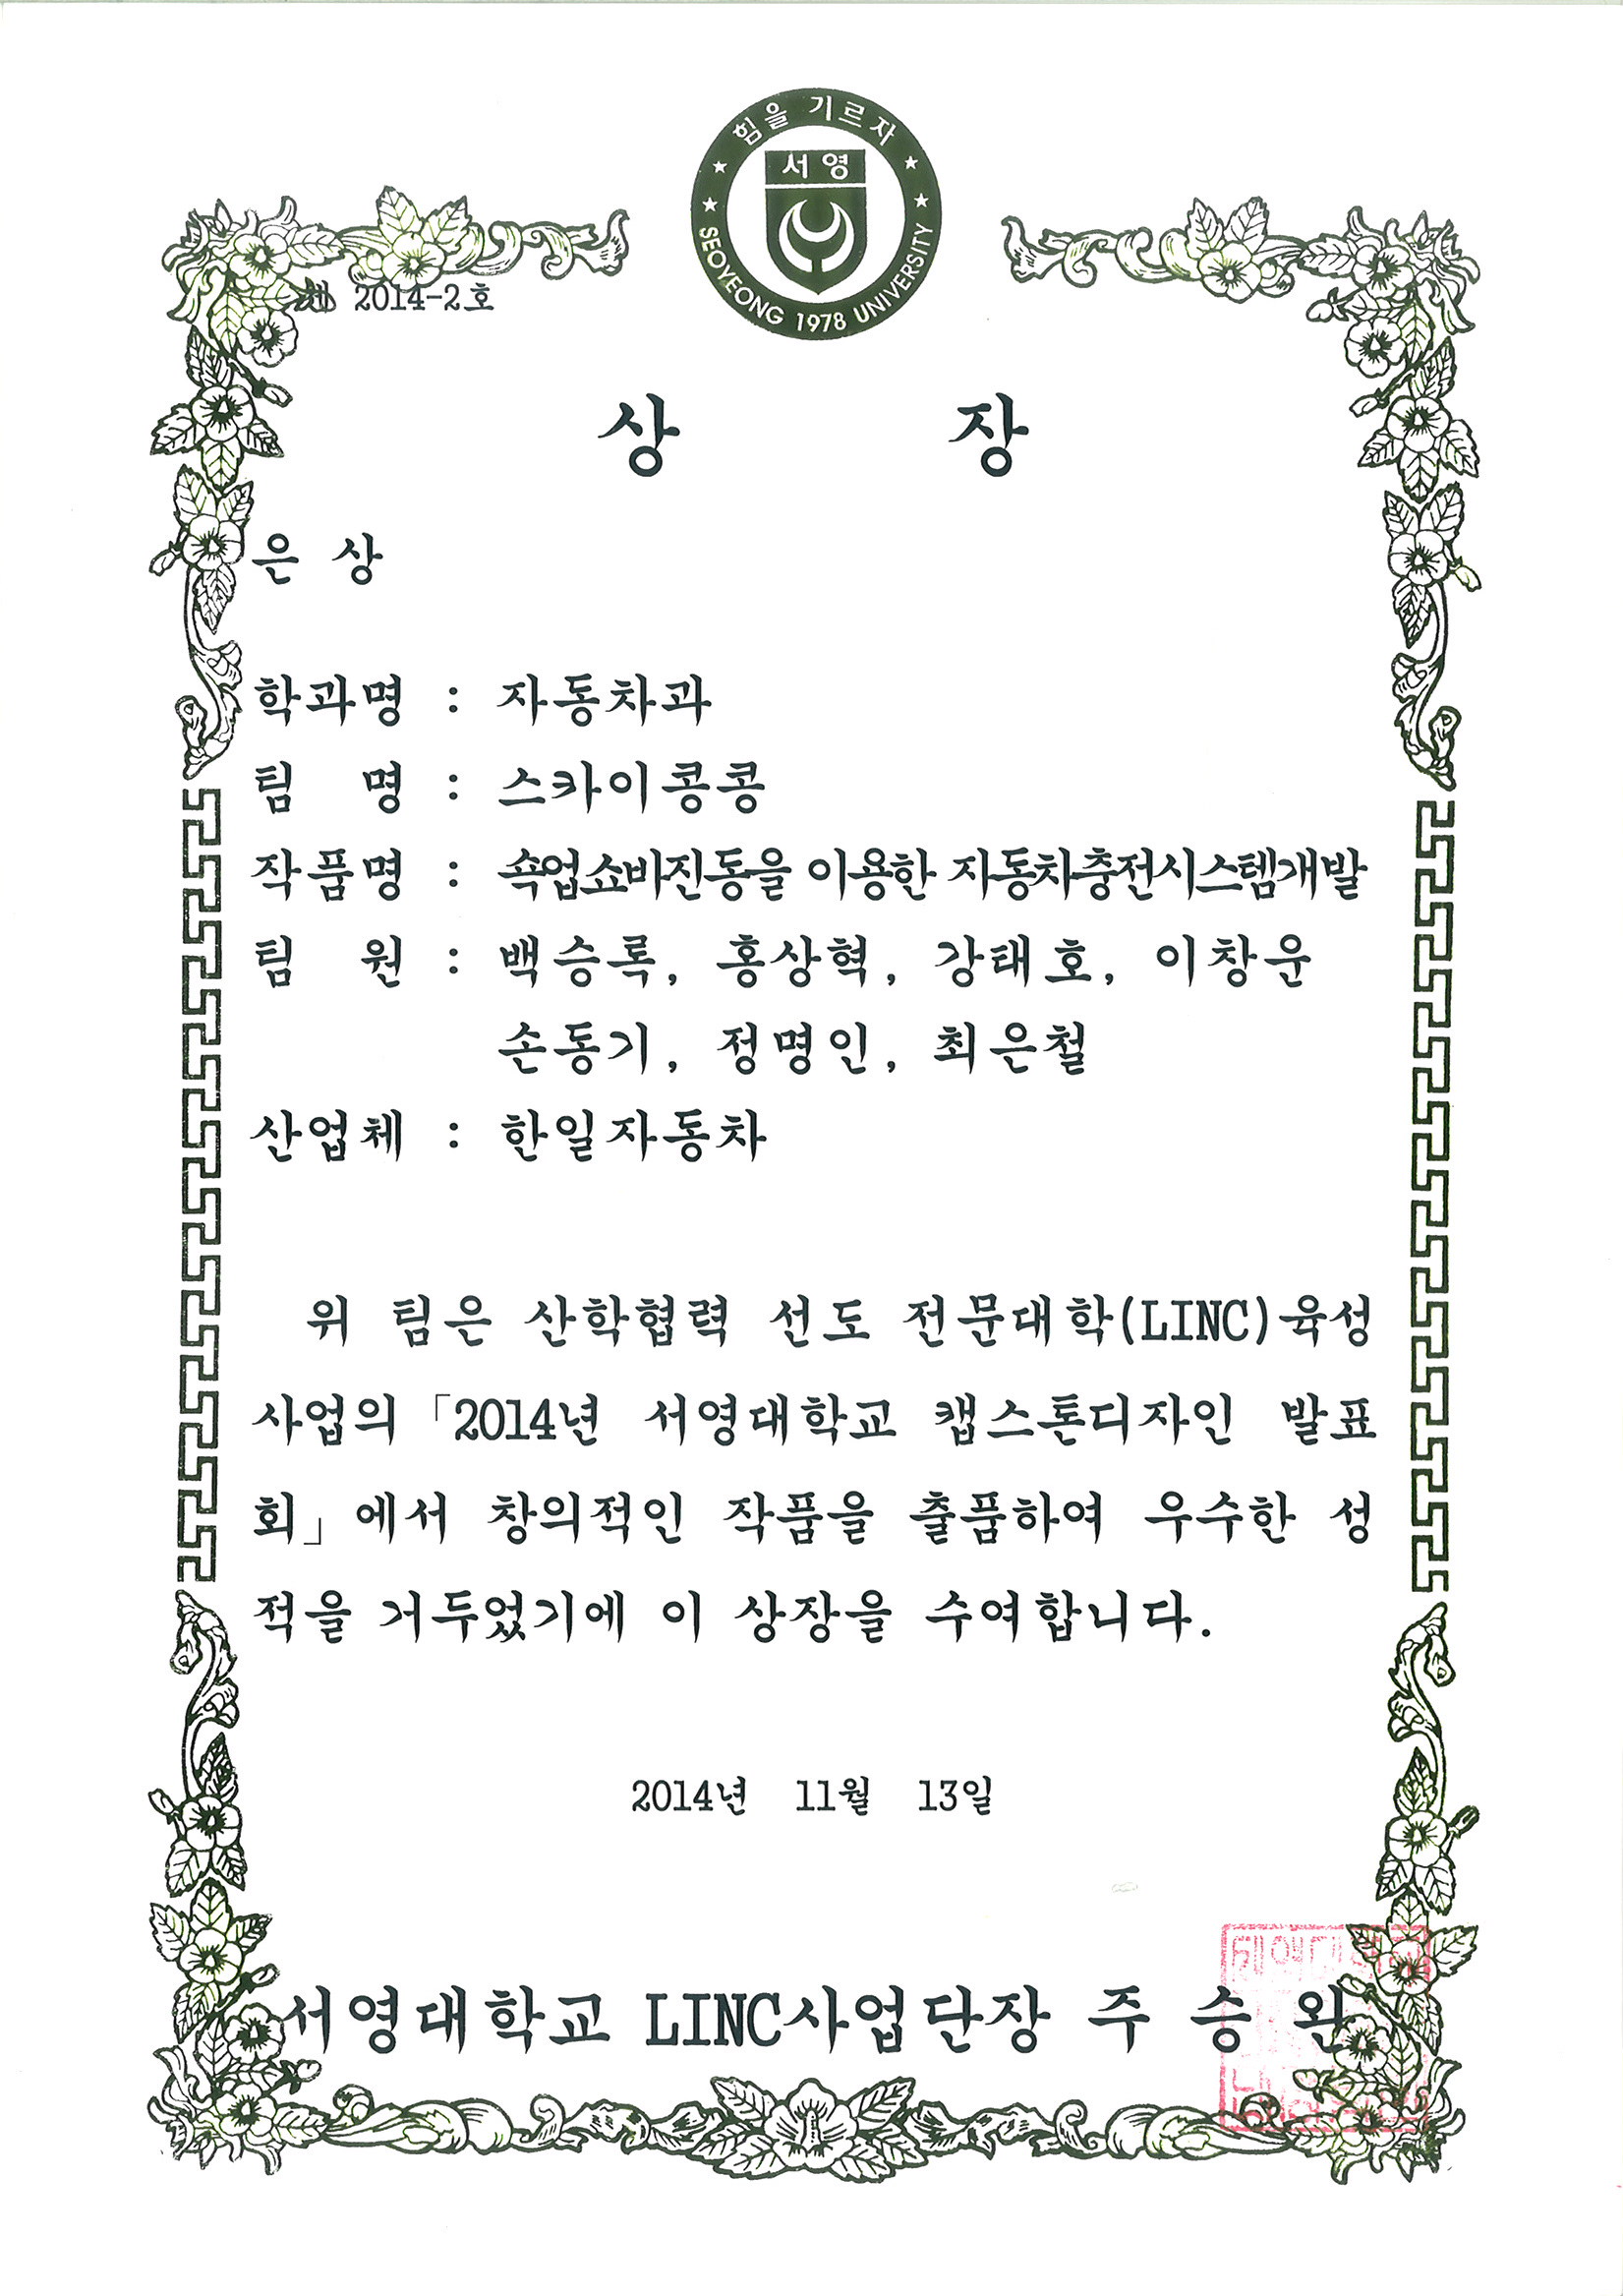 힘을 기르자
서영
SEOYEONG 1978 UNIVERSITY
제 2014-2호
상 장
은 상
학과명 : 자동차과
팀 명 : 스카이콩콩
작품명 : 쇽업쇼바진동을 이용한 자동차충전시스템개발
팀 원 : 백승록, 홍상혁, 강태호, 이창운
손동기, 정명인, 최은철
산업체 : 한일자동차
위 팀은 산학협력 선도 전문대학(LINC)육성
사업의「2014년 서영대학교 캡스톤디자인 발표
회」에서 창의적인 작품을 출품하여 우수한 성
적을 거두었기에 이 상장을 수여합니다.
2014년 11월 13일
서영대학교 LINC사업단장 주 승 완